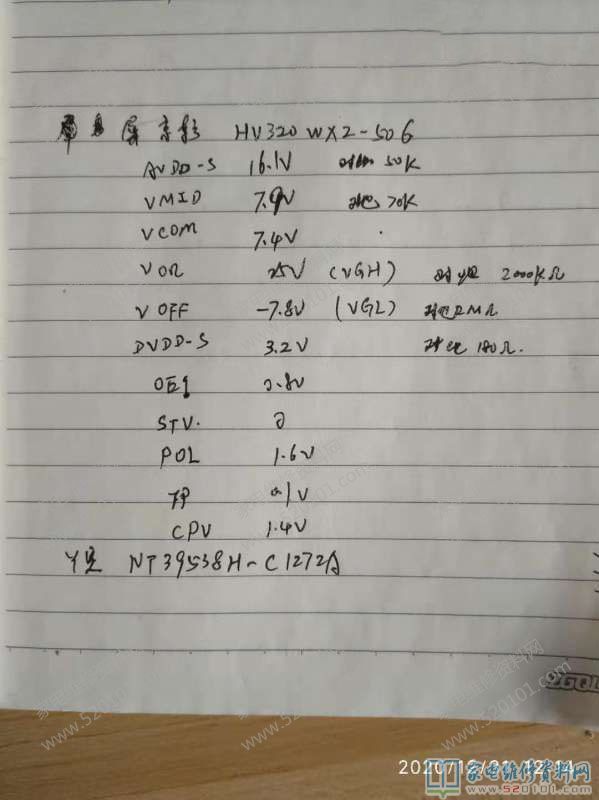 屏京东 HV320WX2-506
AVDD-S 16.1V 对地 50K
VMID 7.9V 对地 70K
VCOM 7.4V
VON 25V (VGH) 对地 2000KΩ
VOFF -7.8V (VGL) 对地2MΩ
DVDD-S 3.2V 对地 180Ω.
OE1 0.8V
STV. 0
POL 1.6V
TP 0.1V
CPV 1.4V
Y NT39538H-C1272A
2020/12/
12:14
家电维修资料网
www.520101.com